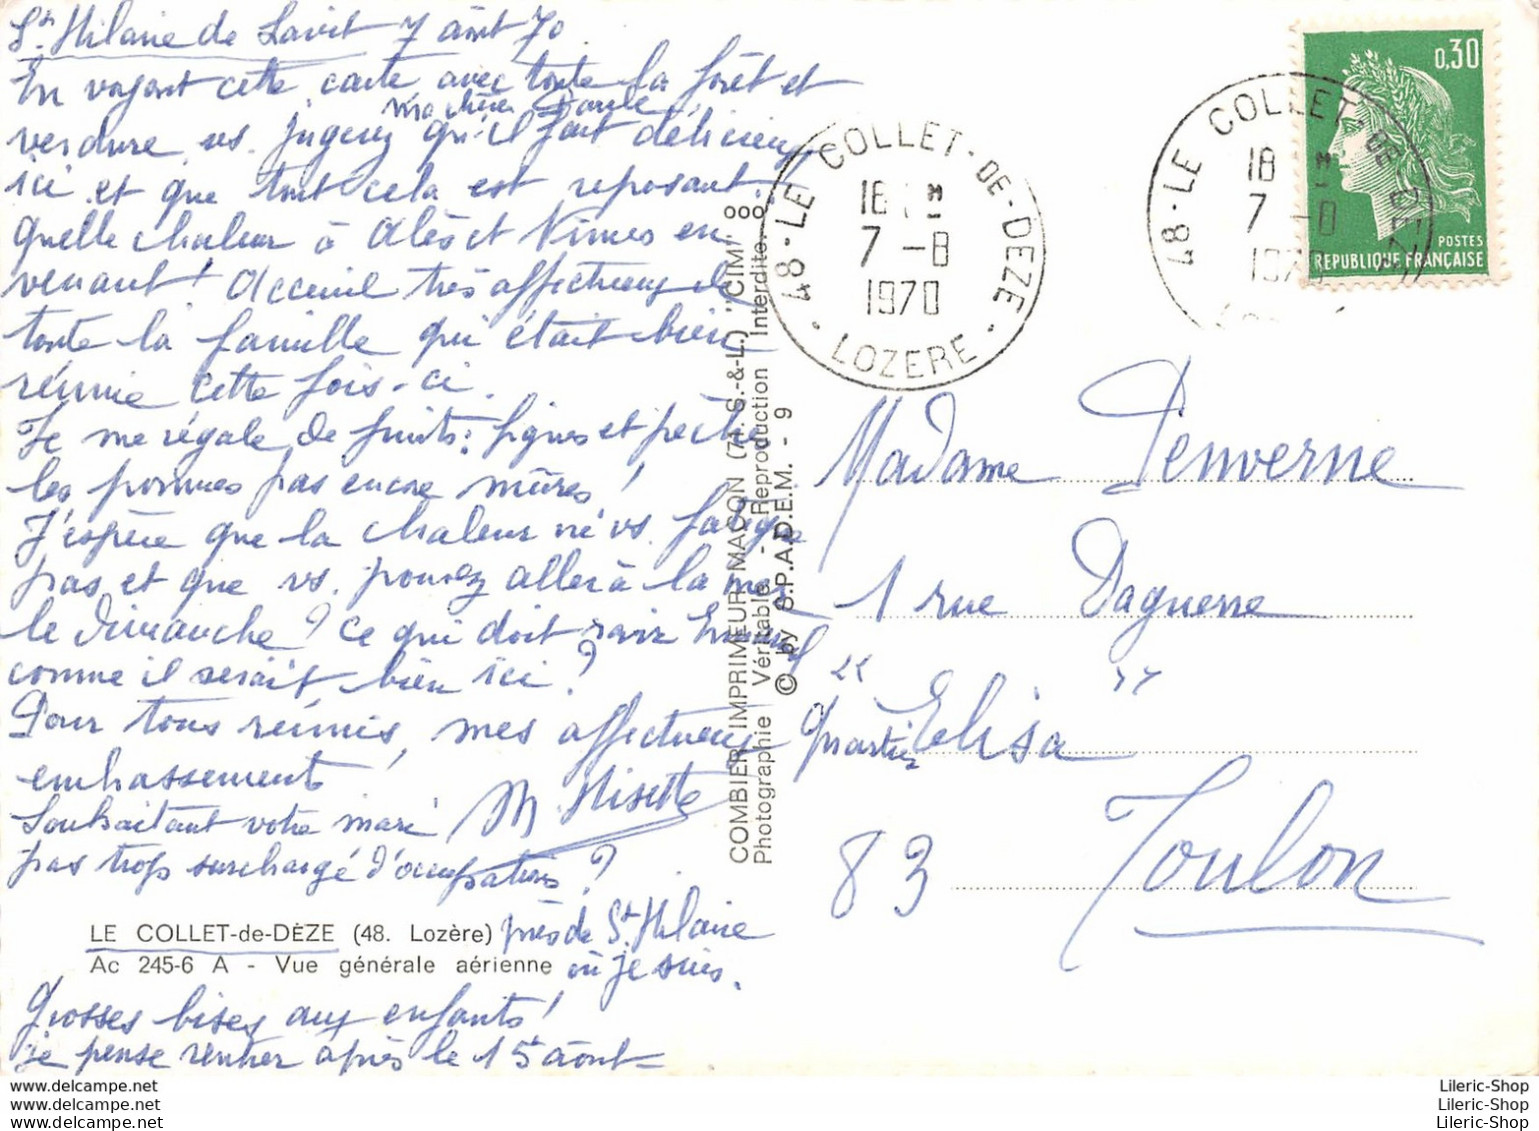 St. Hilaire de Lavit 7 août 70
En voyant cette carte avec toute la forêt et
ma chère Paule
verdure vs. jugerez qu'il fait délicieux
ici et que tout cela est reposant.
Quelle chaleur à Alès et Nîmes en
venant ! Acceuil très affectueux de
toute la famille qui était bien
réunie cette fois-ci.
Je me régale de fruits : figues et pêches
les pommes pas encore mûres !
J'espère que la chaleur ne vs. fatigue
pas et que vs. pouvez aller à la mer
le Dimanche ? Ce qui doit ravir
comme il serait bien ici ?
Pour tous réunis, mes affectueux
embrassements !
M. Misette
Souhaitant votre mari
pas trop surchargé d'occupations ?
LE COLLET-de-DÈZE (48. Lozère) près de St. Hilaire
Ac 245-6 A - Vue générale aérienne où je suis.
Grosses bises aux enfants !
Je pense rentrer après le 15 août
COMBIER IMPRIMEUR MACON (71.S.-&-L.) "CIM"
Photographie Véritable - Reproduction Interdite.
© by S.P.A.D.E.M. - 9
48 - LE COLLET-DE-DEZE - LOZERE
18 H
7 -8
1970
48 - LE COLLET-DE-DEZE
18 H
7 -8
1970
0,30
POSTES
REPUBLIQUE FRANÇAISE
Madame Penverne
1 rue Daguerre
Quartier "Elisa"
83 Toulon
www.delcampe.net
www.delcampe.net
www.delcampe.net
Lileric-Shop
Lileric-Shop
Lileric-Shop